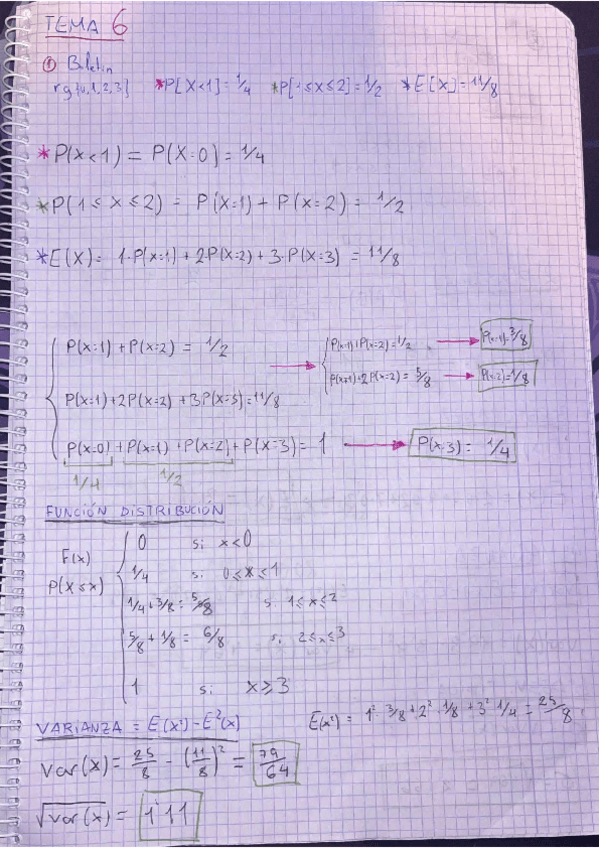 TEMA 6
① Boletin
rg{0,1,2,3} *P[X<1]=1/4 *P[1≤X≤2]=1/2 *E[X]=11/8
*P(X<1) = P(X=0) = 1/4
*P(1≤X≤2) = P(X=1) + P(X=2) = 1/2
*E(X)= 1·P(X=1) + 2·P(X=2) + 3·P(X=3) = 11/8
P(X=1) + P(X=2) = 1/2 → P(X=1)+P(X=2)=1/2 → P(X=1)=3/8
P(X=1)+2P(X=2) = 5/8 → P(X=2)=1/8
P(X=1)+2P(X=2)+3P(X=3)=11/8
P(X=0)+P(X=1)+P(X=2)+P(X=3)= 1 → P(X=3) = 1/4
1/4 1/2
FUNCIÓN DISTRIBUCIÓN
F(x)
P(X≤x)
0 si x<0
1/4 si 0≤x≤1
1/4+3/8= 5/8 si 1≤x≤2
5/8+1/8= 6/8 si 2≤x≤3
1 si x≥3
VARIANZA = E(x²)-E²(x) E(x²) = 1²·3/8+2²·1/8+3²·1/4 = 25/8
Var(x)= 25/8 - (11/8)² = 79/64
√Var(x) = 1'11